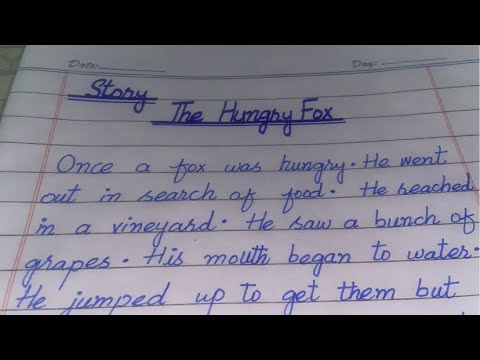 Date:
Day:
Story
The Hungry Fox
Once a fox was hungry. He went
out in search of food. He reached
in a vineyard. He saw a bunch of
grapes. His mouth began to water.
He jumped up to get them but